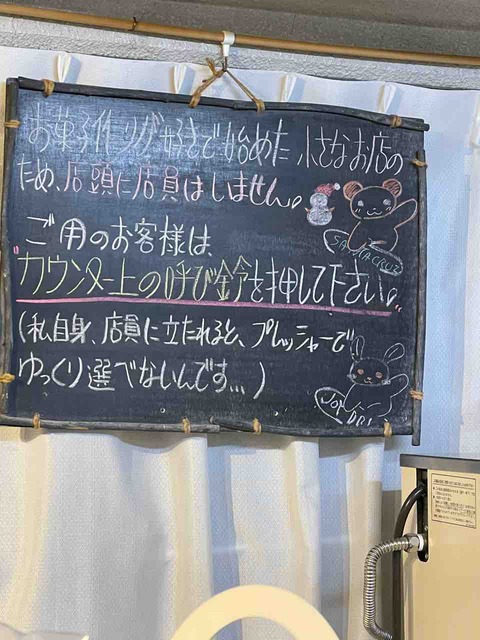 お菓子作りが好きで始めた小さなお店の
ため、店頭に店員はしません。
ご用のお客様は、
"カウンター上の呼び鈴を押して下さい。"
(私自身、店員に立たれると、プレッシャーで
ゆっくり選べないんです...)
SANTACRUZ
JOY DRI